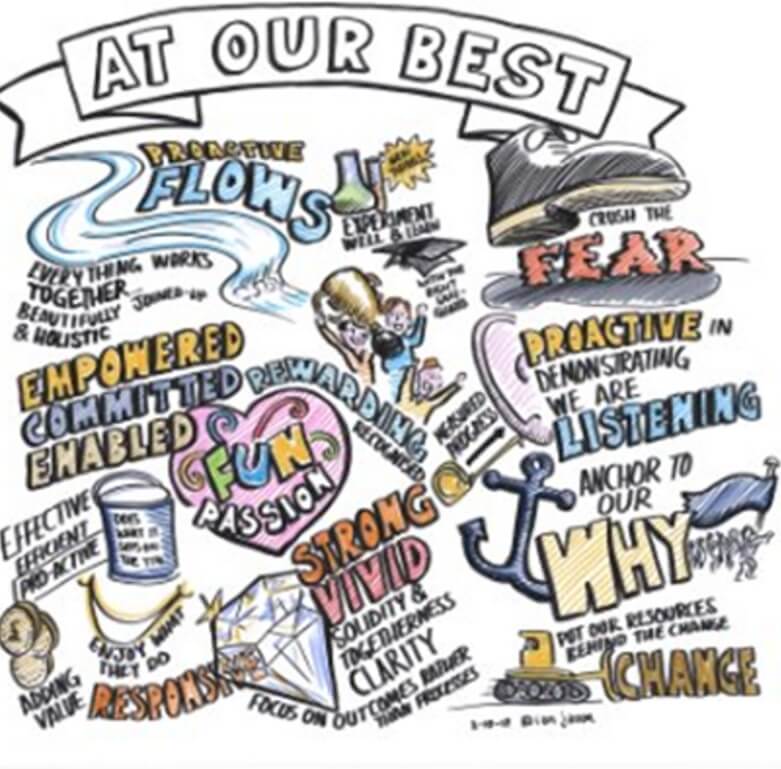 AT OUR BEST
PROACTIVE
FLOWS
EXPERIMENT
WELL & LEARN
CRUSH THE
FEAR
EVERYTHING WORKS
TOGETHER
JOINED-UP
BEAUTIFULLY
& HOLISTIC
WITH THE
RIGHT
EMPOWERED
COMMITTED
ENABLED
REWARDING
RECOGNISED
MEASURED
PROGRESS
PROACTIVE IN
DEMONSTRATING
WE ARE
LISTENING
FUN
PASSION
ANCHOR TO
OUR
WHY
EFFECTIVE
EFFICIENT
PRO-ACTIVE
DOES
WHAT IT
SAYS ON
THE TIN
STRONG
VIVID
SOLIDITY &
TOGETHERNESS
CLARITY
FOCUS ON OUTCOMES RATHER
THAN PROCESSES
ENJOY WHAT
THEY DO
£
ADDING
VALUE
RESPONSIVE
PUT OUR RESOURCES
BEHIND THE CHANGE
CHANGE